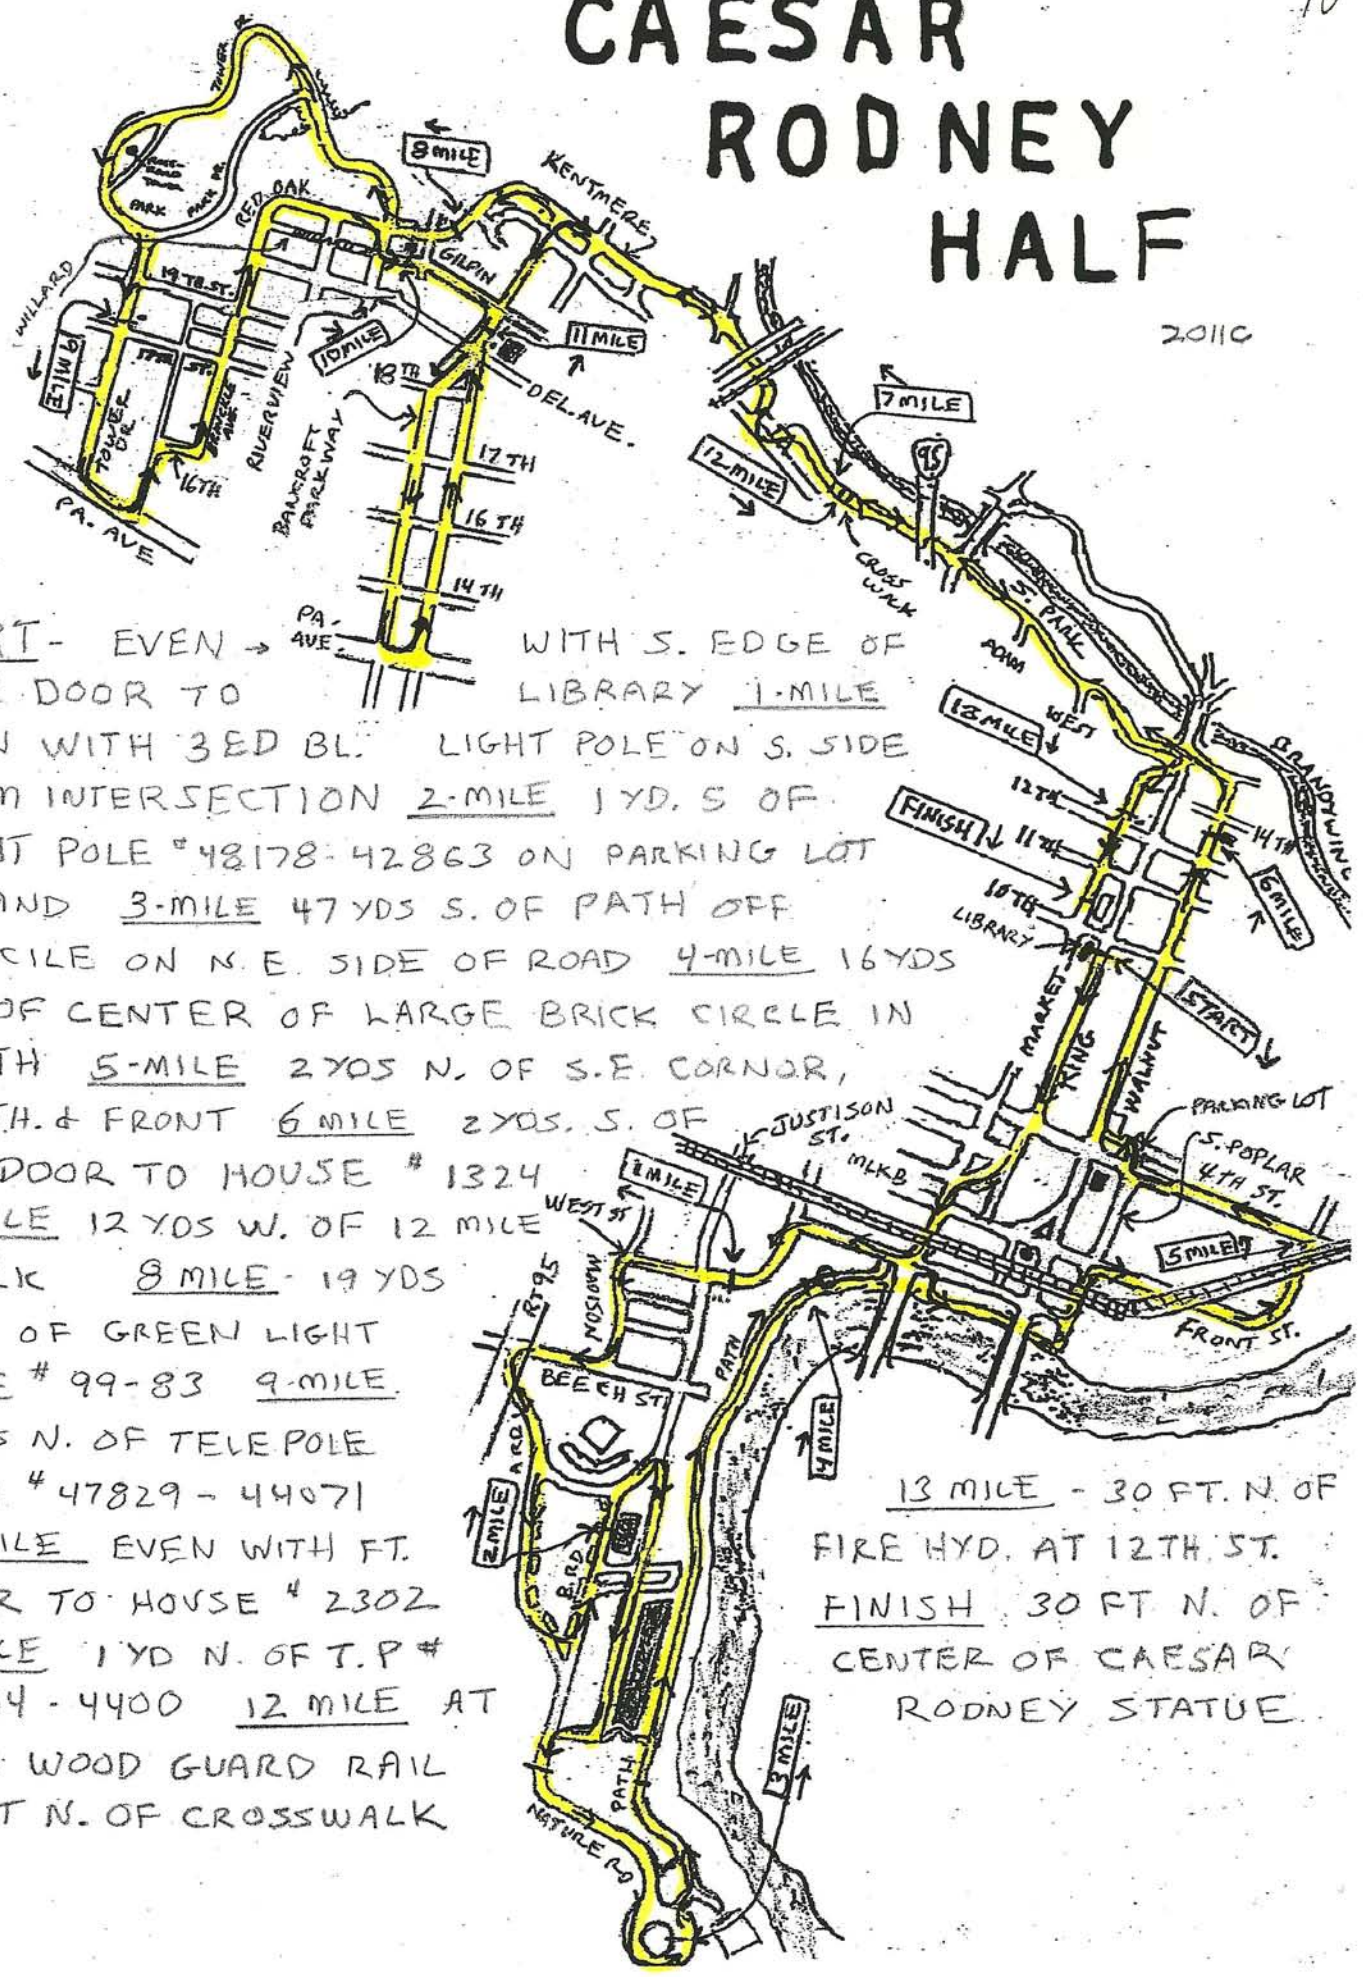 CAESAR
RODNEY
HALF
2011C
TOWER DR.
8 MILE
KENTMERE
PARK
PARK DR.
RED OAK
GILPIN
WILLARD
19 TH. ST.
9 MILE
10 MILE
11 MILE
18 TH
DEL. AVE.
TOWER
DR
RIVERVIEW
BANCROFT
PARKWAY
16TH
PA. AVE
17 TH
16 TH
14 TH
PA.
AVE
7 MILE
12 MILE
95
CROSS
WALK
S. PARK
ADAM
WEST
13 MILE
BRANDYWINE
12TH
FINISH
11TH
14 TH
10TH
6 MILE
LIBRARY
START
MARKET
KING
WALNUT
PARKING LOT
S. POPLAR
4TH ST.
JUSTISON
ST.
MLKB
1 MILE
WEST ST
5 MILE
FRONT ST.
RT 95
MADISON
BEECH ST.
PATH
4 MILE
A RD
2 MILE
B. RD
PATH
3 MILE
NATURE RD
RT- EVEN → WITH S. EDGE OF
DOOR TO LIBRARY 1-MILE
N WITH 3ED BL. LIGHT POLE ON S. SIDE
M INTERSECTION 2-MILE 1 YD. S OF
T POLE #48178-42863 ON PARKING LOT
AND 3-MILE 47 YDS S. OF PATH OFF
CILE ON N.E. SIDE OF ROAD 4-MILE 16YDS
OF CENTER OF LARGE BRICK CIRCLE IN
TH 5-MILE 2 YDS N. OF S.E. CORNOR,
TH. & FRONT 6 MILE 2 YDS. S. OF
DOOR TO HOUSE # 1324
LE 12 YDS W. OF 12 MILE
LK 8 MILE - 19 YDS
OF GREEN LIGHT
E # 99-83 9-MILE
S N. OF TELE POLE
# 47829 - 44071
ILE EVEN WITH FT.
R TO HOUSE # 2302
LE 1 YD N. OF T.P #
4 - 4400 12 MILE AT
WOOD GUARD RAIL
T N. OF CROSSWALK
13 MILE - 30 FT. N. OF
FIRE HYD. AT 12TH ST.
FINISH 30 FT N. OF
CENTER OF CAESAR
RODNEY STATUE